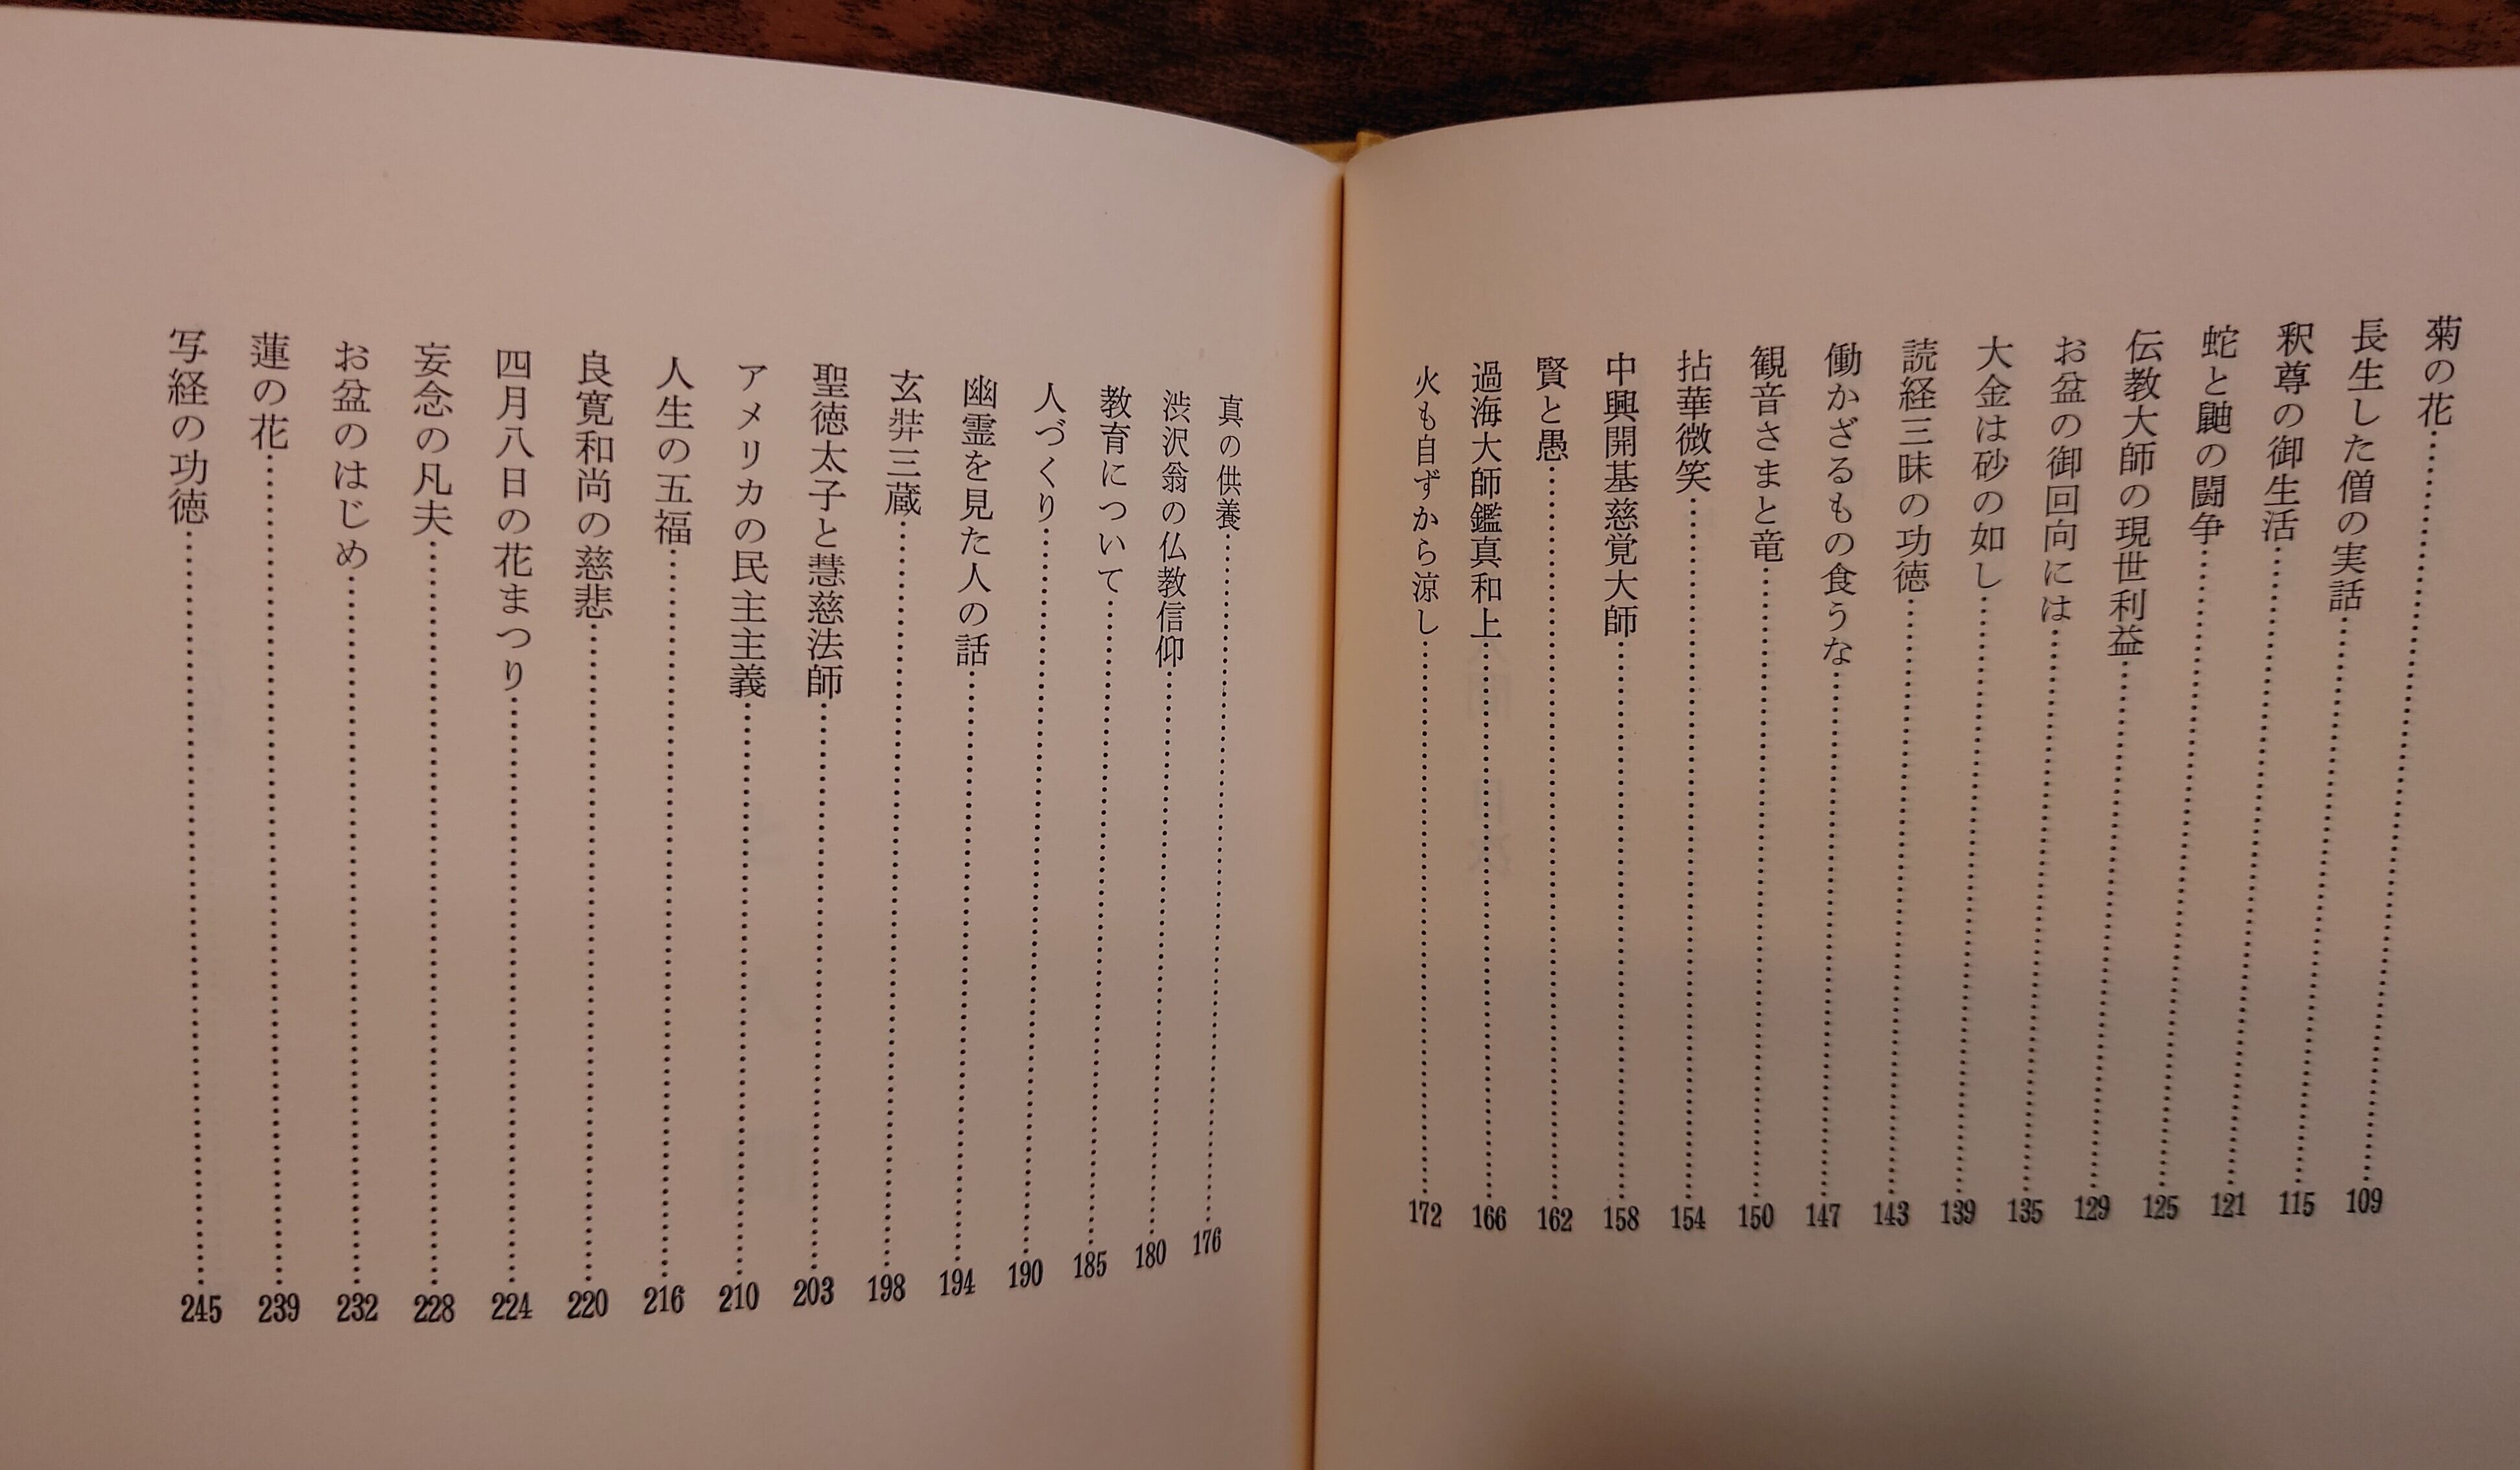 菊の花……109
長生した僧の実話……115
釈尊の御生活……121
蛇と鼬の闘争……125
伝教大師の現世利益……129
お盆の御回向には……135
大金は砂の如し……139
読経三昧の功徳……143
働かざるもの食うな……147
観音さまと竜……150
拈華微笑……154
中興開基慈覚大師……158
賢と愚……162
過海大師鑑真和上……166
火も自ずから涼し……172
真の供養……176
渋沢翁の仏教信仰……180
教育について……185
人づくり……190
幽霊を見た人の話……194
玄弉三蔵……198
聖徳太子と慧慈法師……203
アメリカの民主主義……210
人生の五福……216
良寛和尚の慈悲……220
四月八日の花まつり……224
妄念の凡夫……228
お盆のはじめ……232
蓮の花……239
写経の功徳……245